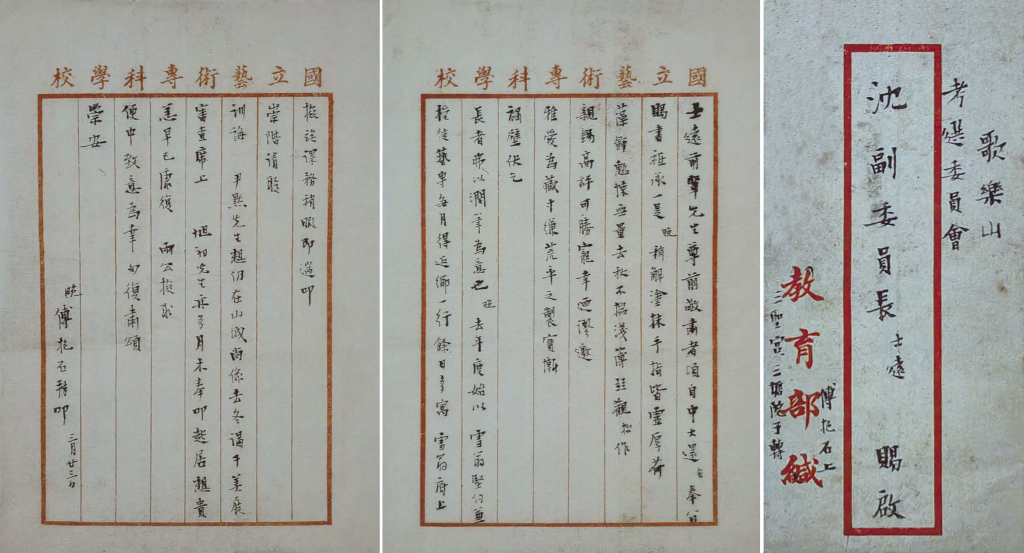 歌樂山
考選委員會
沈副委員長 士遠 賜啟
傅抱石上
教育部緘
三聖宮三塘院子轉
國立藝術專科學校
士遠前輩先生尊前敬肅者頃自中大還舍奉
賜書祗承一是晚稍解塗抹手指皆靈厚荷
藻飾慙悚無量去秋不揣淺薄 觀拙作
親錫高評可勝寵幸迺謬邀
雅愛為藏寸縑荒率之製實慚
補壁伏乞
長者弗以潤筆為意也晚去年度始以 雪翁堅約兼
授佳藝專每月得返鄉一行餘日多寓 雪翁府上
國立藝術專科學校
擬 課務稍暇即過叩
崇階請聆
訓誨 尹默先生想仍在山城尚係去冬謁于美展
審查席上 旭初先生亦多月未奉叩起居想貴
恙早已康復 兩公擬求
便中致意為幸匆復肅頌
崇安
晚傅抱石拜叩 三月廿三日